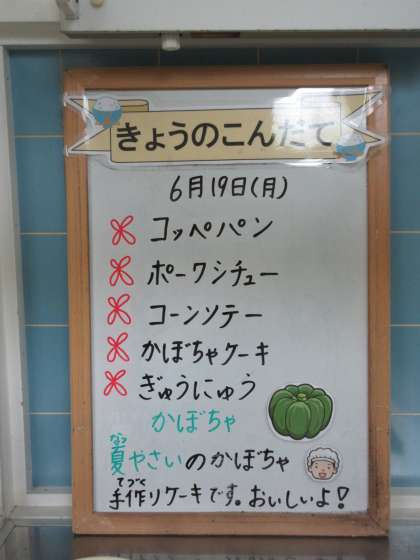 きょうのこんだて
6月19日(月)
コッペパン
ポークシチュー
コーンソテー
かぼちゃケーキ
ぎゅうにゅう
かぼちゃ
なつ
夏やさいのかぼちゃ
てづく
手作りケーキです。おいしいよ!